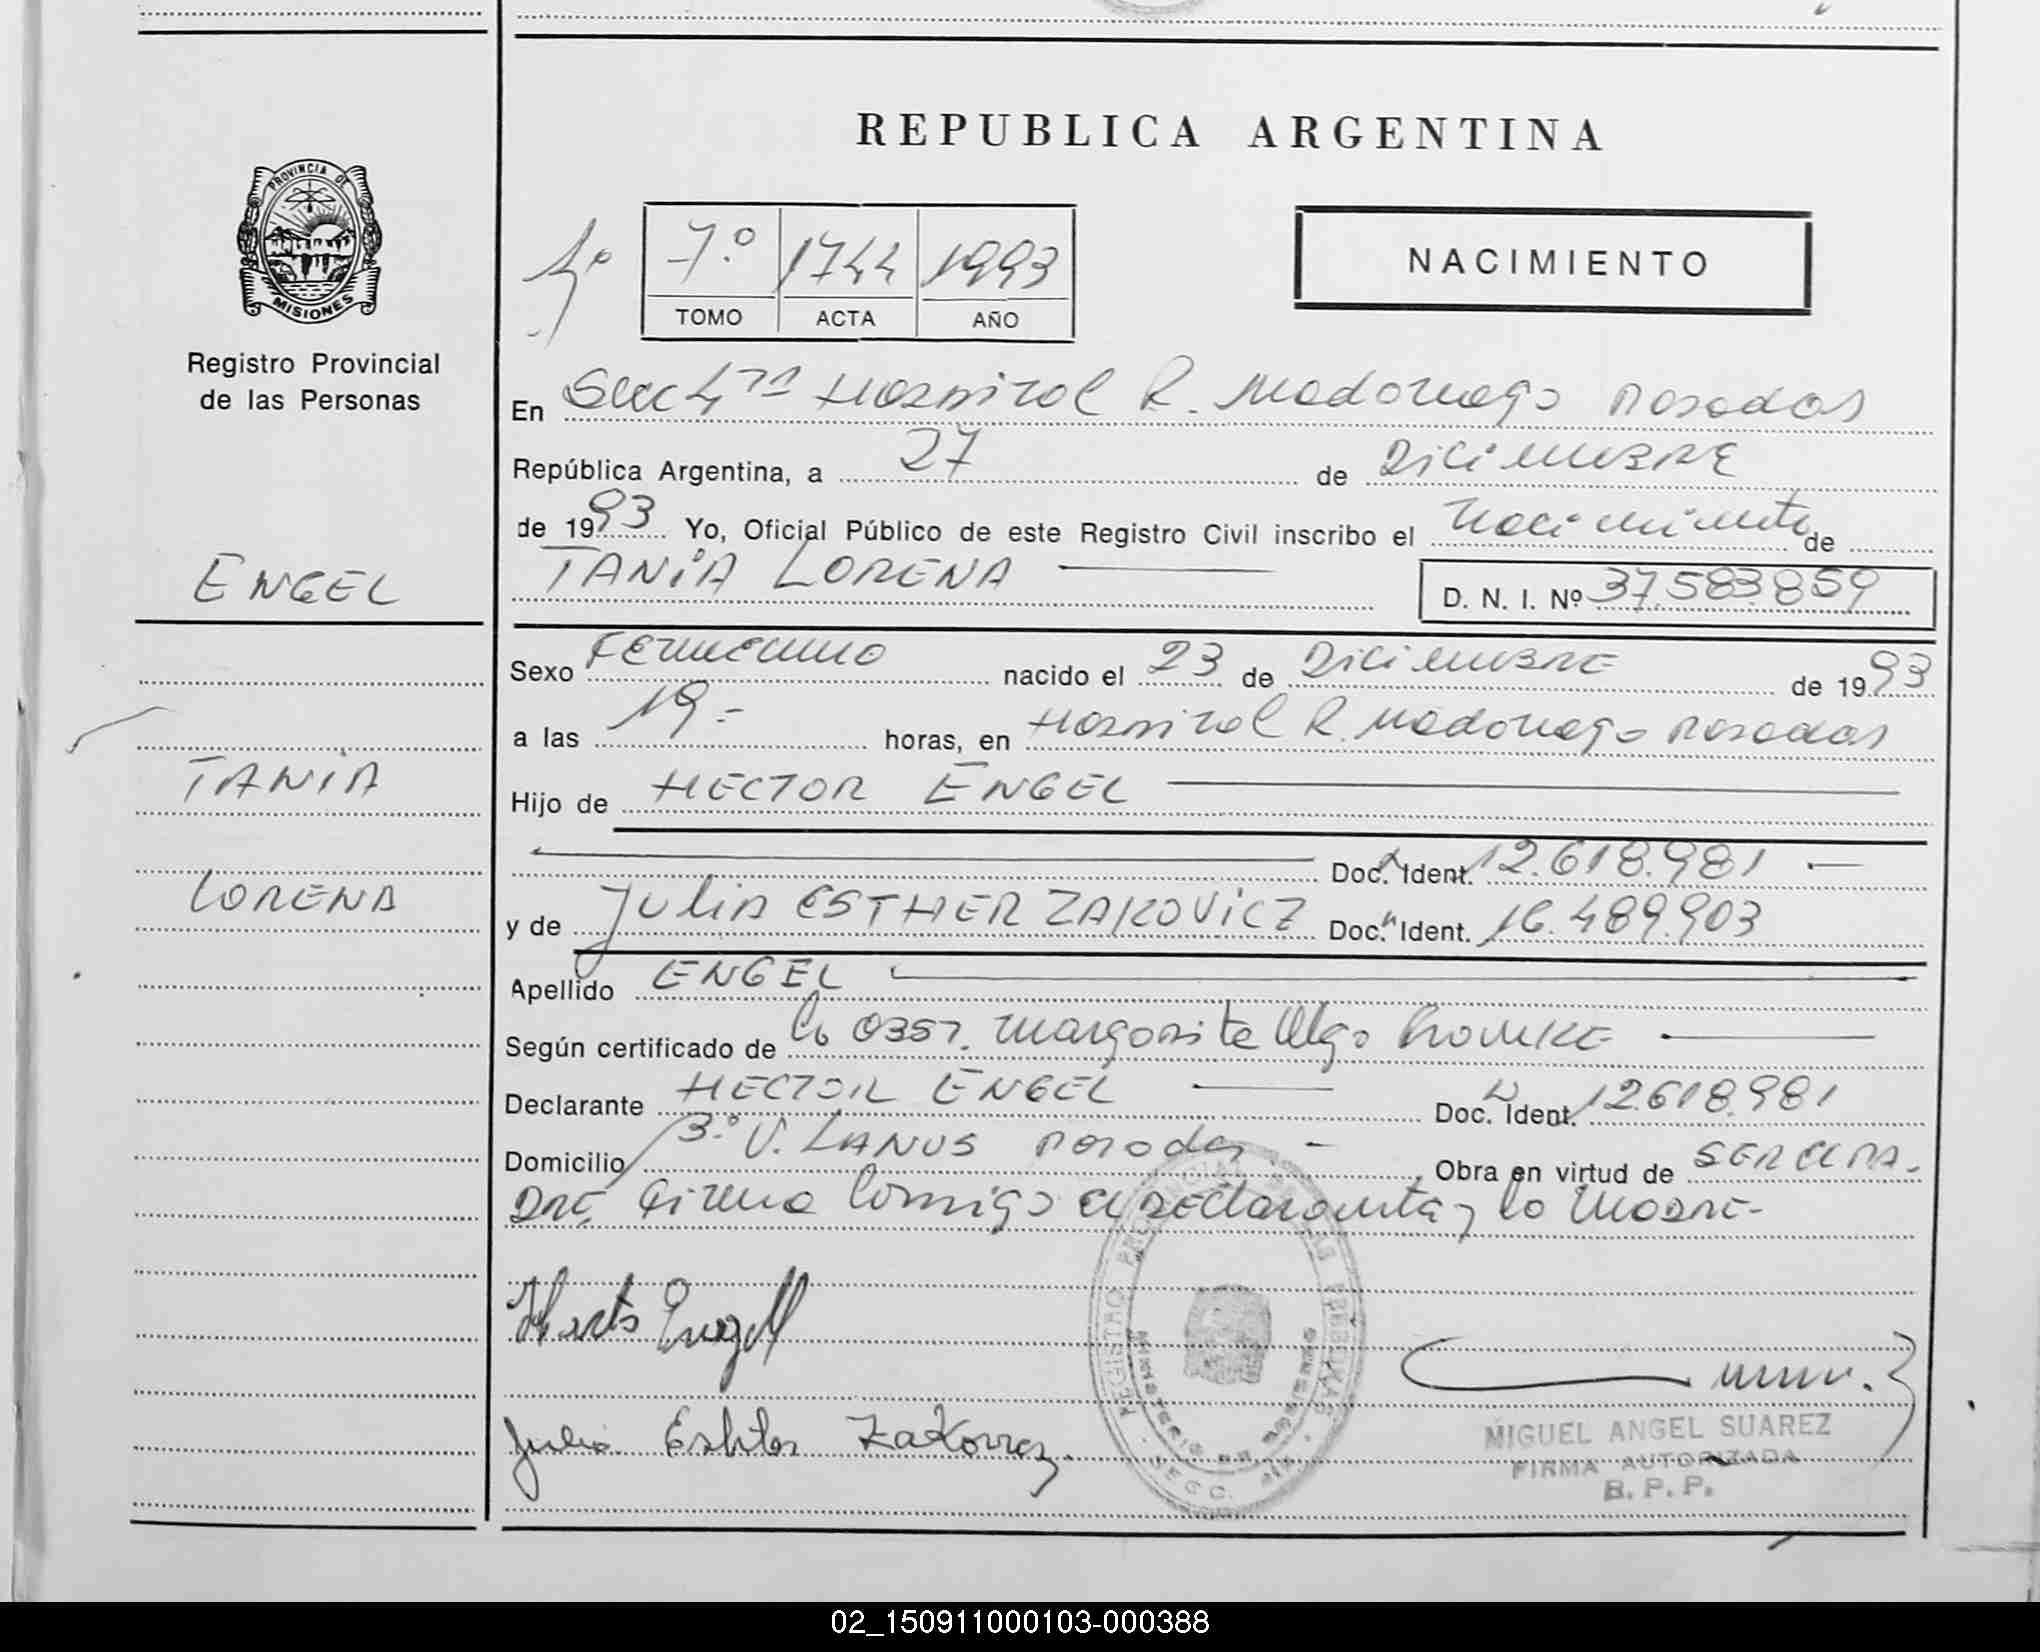 REPUBLICA ARGENTINA
PROVINCIA DE
MISIONES
Registro Provincial
de las Personas
7º 1744 1993
TOMO ACTA AÑO
NACIMIENTO
En Secc 4ta Hospital R. Madariaga Posadas
República Argentina, a 27 de DiciEMBRE
de 1993 Yo, Oficial Público de este Registro Civil inscribo el Nacimiento de
ENGEL
TANIA LORENA
D. N. I. Nº 37.583.859
Sexo FEmenino nacido el 23 de DiciEMBRE de 1993
a las 19.- horas, en Hospital R. Madariaga Posadas
TANIA
Hijo de HECTOR ENGEL
Doc. Ident. 12.618.981
LORENA
y de JULIA ESTHER ZAKOVICZ Doc. Ident. 16.489.903
Apellido ENGEL
Según certificado de la OBST. Margarita Olga
Declarante HECTOR ENGEL Doc. Ident. 12.618.981
Domicilio V. LANUS Posadas - Obra en virtud de SER EL PA-
DRE. Firma Conmigo el DEClarante y la MADRE-
Engel
Julia Esther Zakovicz
REGISTRO
MINISTERIO DE
SECC.
MIGUEL ANGEL SUAREZ
FIRMA AUTORIZADA
B. P. P.
02_150911000103-000388